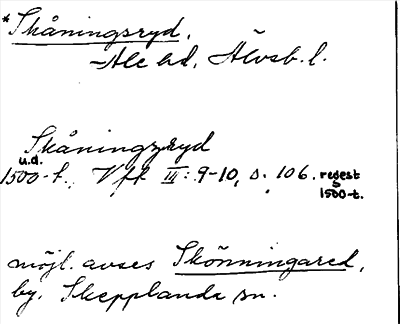 *Skåningsryd.
Ale hd, Älvsb. l.
Skåningzryd
u.d.
1500-t. Vft III: 9-10, s. 106. regest
1500-t.
möjl. avses Skönningared,
by, Skepplanda sn.